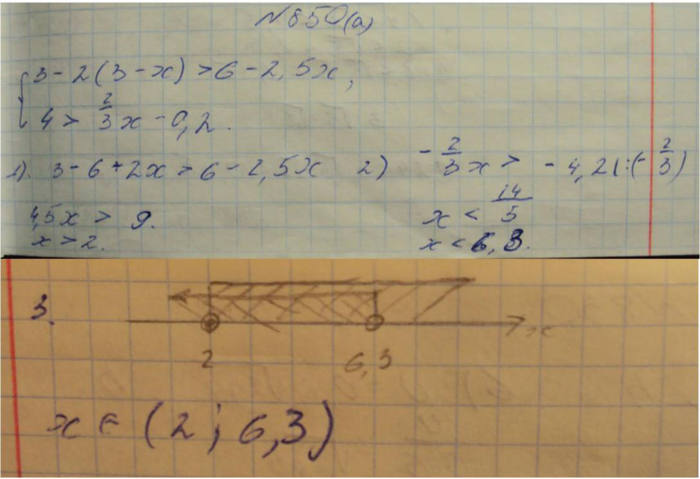 №850(а)
3 - 2(3 - x) > 6 - 2,5x,
4 > 2/3 x - 0,2.
1). 3 - 6 + 2x > 6 - 2,5x
4,5x > 9.
x > 2.
2) - 2/3 x > - 4,2 | : (- 2/3)
x < 14/5
x < 6,3.
3.
x
2 6,3
x ∈ (2; 6,3)